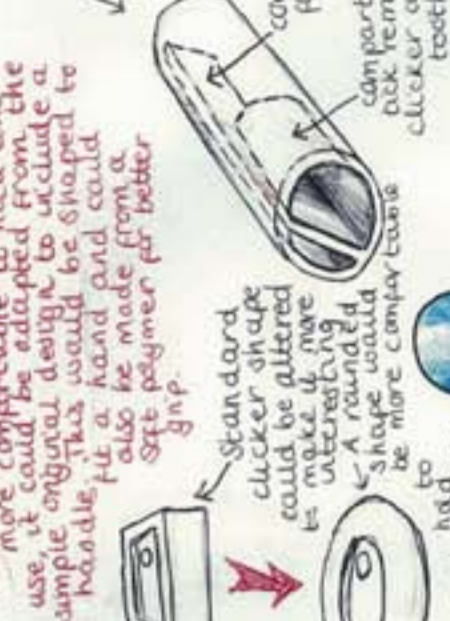 more comfortable to hold
use, it could be adapted from the
simple original design to include a
handle. This would be shaped to
fit a hand and could
also be made from a
soft polymer for better
grip.
compart
rem
clicker
toot
Standard
clicker shape
could be altered
to make it more
interesting
A rounded
shape would
be more comfortable
to
had